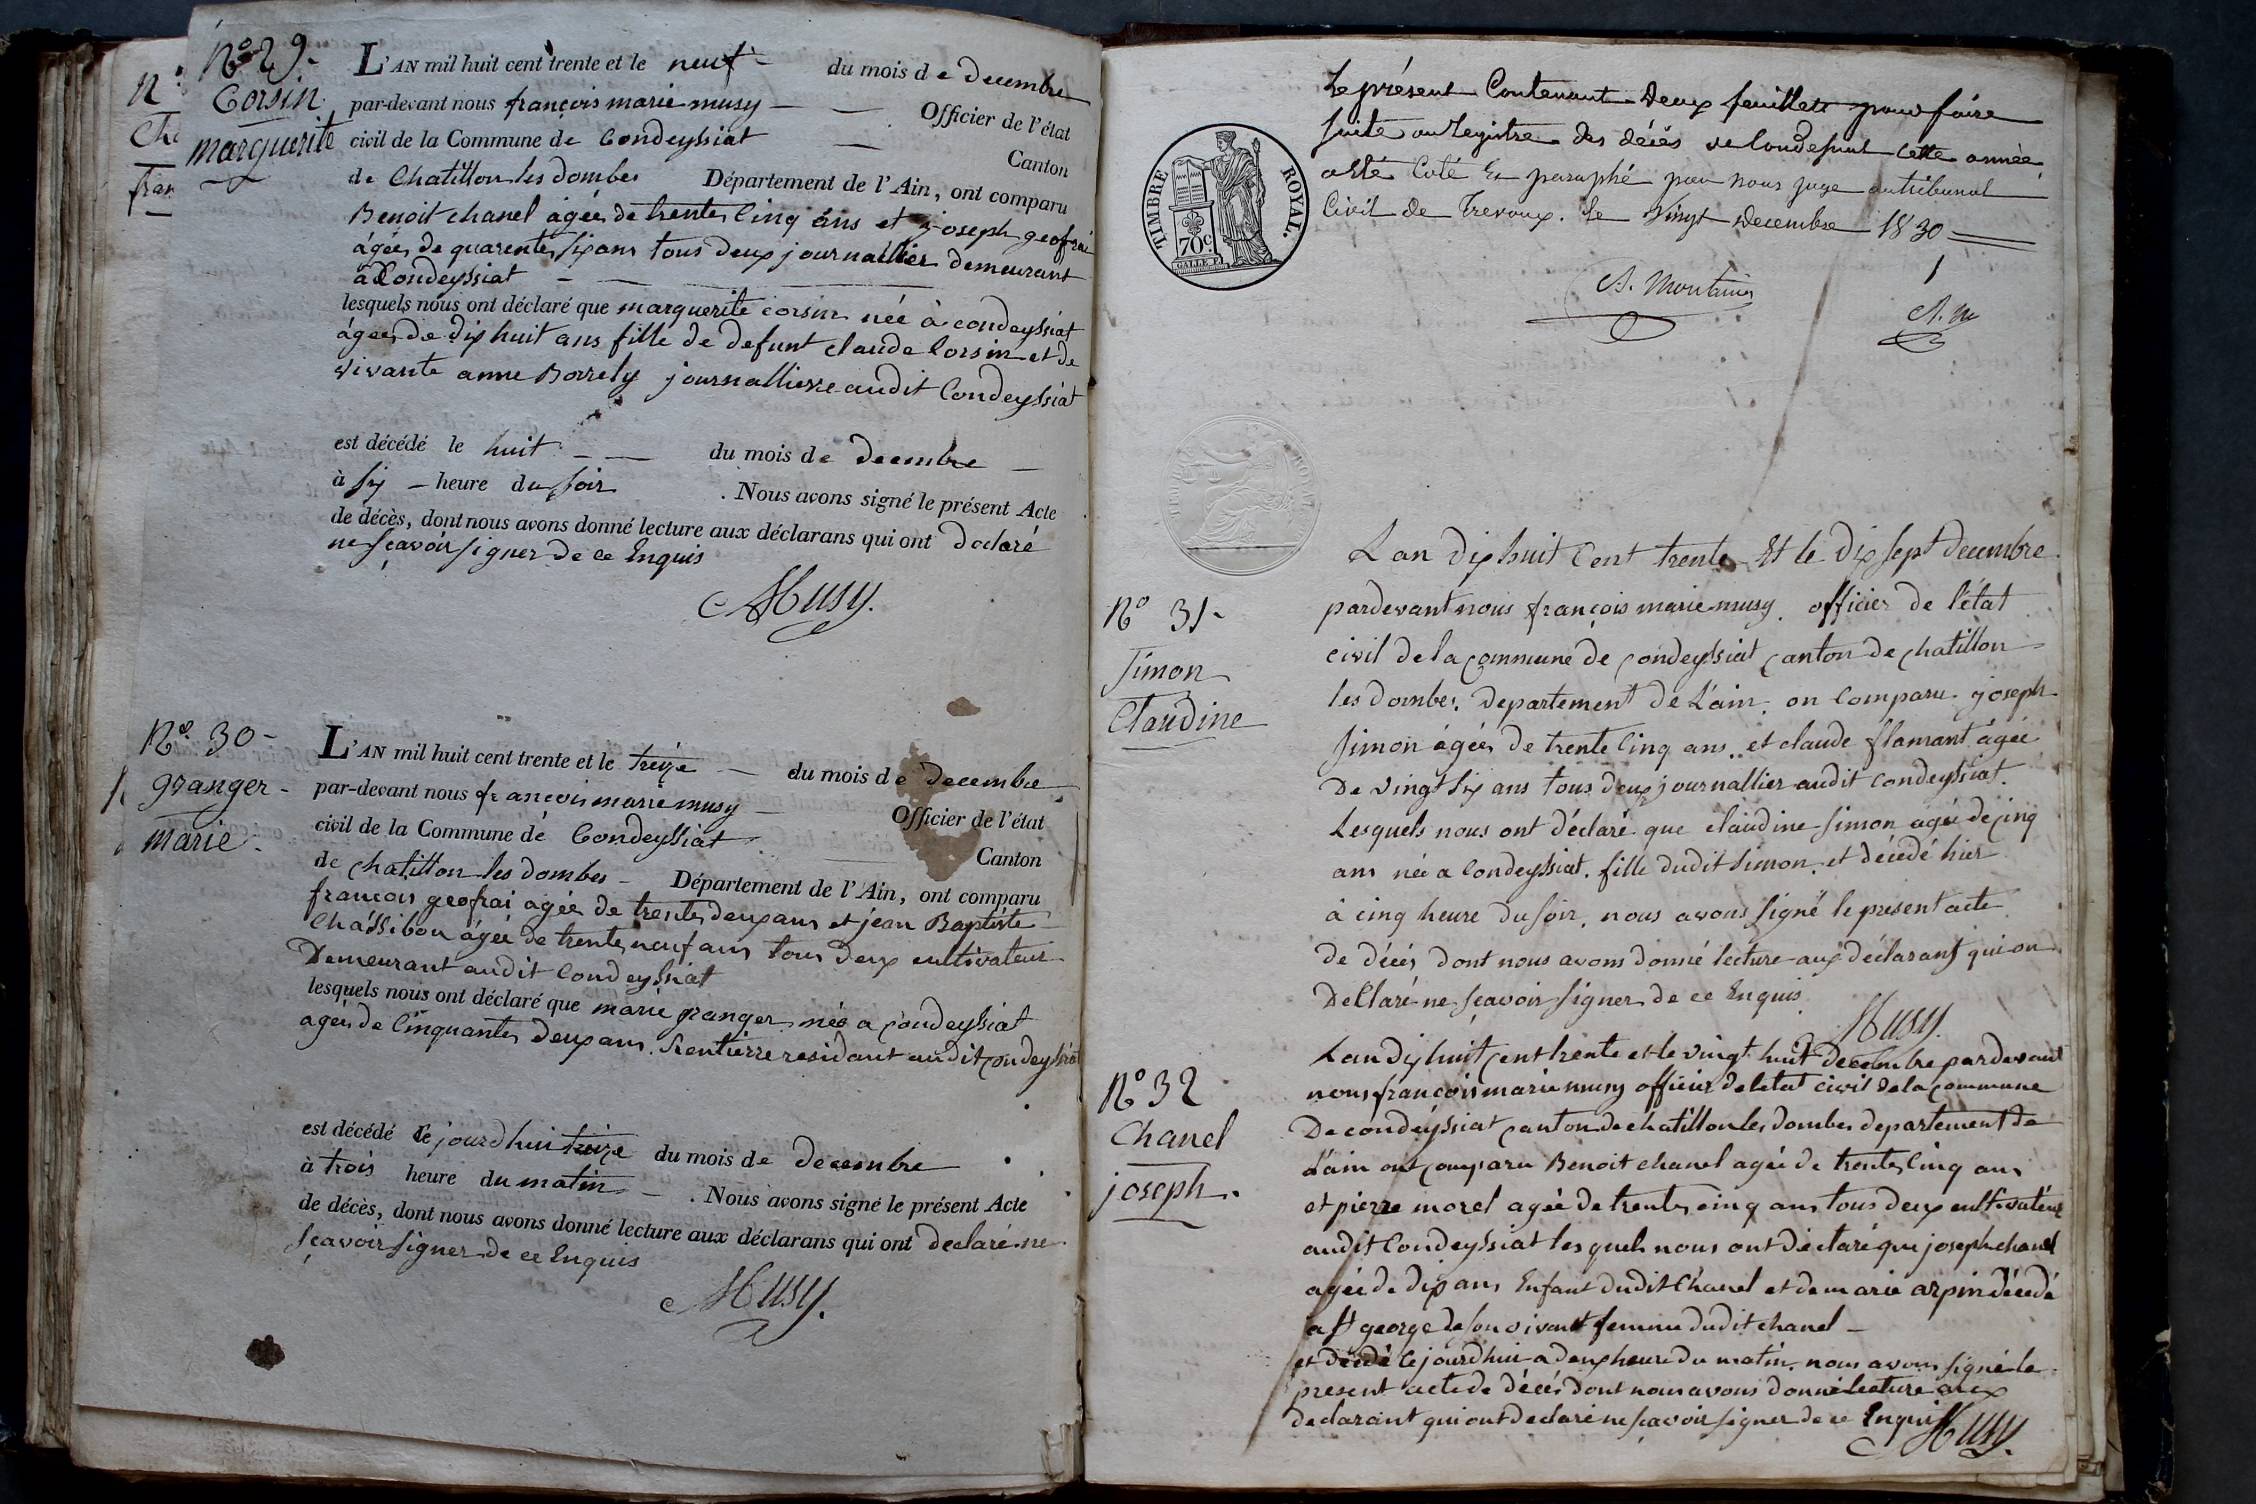 N.º 29.
Corsin
marguerite
L'AN mil huit cent trente et le neuf du mois de decembre
par-devant nous françois marie musy Officier de l'état
civil de la Commune de Condeyssiat Canton
de Chatillon les dombes Département de l'Ain, ont comparu
Benoit chanel agée de trente Cinq ans et joseph geofrai
âgée de quarente six ans tous deux journallier demeurant
a Condeyssiat
lesquels nous ont déclaré que marguerite corsin née à condeyssiat
âgée de dix huit ans fille de defunt claude Corsin et de
vivante anne Borrely journallierre audit Condeyssiat
est décédé le huit du mois de decembre
à six heure du soir . Nous avons signé le présent Acte
de décès, dont nous avons donné lecture aux déclarans qui ont declaré
ne sçavoir signer de ce Enquis
Musy.
N.º 30
granger
marie.
L'AN mil huit cent trente et le treize du mois de decembre
par-devant nous françois marie musy Officier de l'état
civil de la Commune de Condeyssiat Canton
de chatillon les dombes Département de l'Ain, ont comparu
francois geofrai agée de trente deux ans et jean Baptiste
Chassibou âgée de trente neuf ans tous deux cultivateur
Demeurant audit Condeyssiat
lesquels nous ont déclaré que marie granger née a Condeyssiat
agée de Cinquante deux ans. Rentierre residant audit Condeyssiat
est décédé Ce jourdhui treize du mois de decembre
à trois heure du matin . Nous avons signé le présent Acte
de décès, dont nous avons donné lecture aux déclarans qui ont declaré ne
sçavoir signer de ce Enquis
Musy.
TIMBRE ROYAL.
70c.
Le présent Contenant Deux feuillets pour faire
suite au registre des décès de Condeysiat cette année
a été Coté Et paraphé par nous juge au tribunal
Civil de Trevoux. le vingt decembre 1830
A. Montaim
1
A. m
N.º 31
Simon
Claudine
L an dix huit Cent trente Et le Dix sept decembre
pardevant nous françois marie musy. officier de l'état
civil de la commune de Condeyssiat Canton de chatillon
les dombes. departement de L'ain. on Comparu joseph
Simon âgée de trente Cinq ans. et claude flamant âgée
De vingt six ans tous deux journallier audit condeyssiat.
Lesquels nous ont déclaré que claudine simon agée de cinq
ans née a Condeyssiat. fille dudit Simon. et décédé hier
à cinq heure du soir. nous avons signé le present acte
de décès dont nous avons donné lecture aux déclarant qui on
Declaré ne sçavoir signer de ce Enquis
Musy.
N.º 32
Chanel
joseph.
L an dix huit Cent trente et le vingt huit Decembre pardevant
nous françois marie musy officier de letat civil de la commune
De condeyssiat canton de chatillon les dombes departement de
L'ain ont Comparu Benoit chanel agée de trente Cinq ans
et pierre morel agée de trente cinq ans tous deux cultivateur
audit Condeyssiat lesquels nous ont déclaré que joseph chanel
agée de dix ans Enfant dudit Chanel et de marie arpin décédé
a St george de son vivant femme dudit chanel
et décédé Ce jourdhui a deux heure du matin. nous avons signé le
present acte de décès dont nous avons donné lecture aux
declarant qui ont declaré ne sçavoir signer de ce Enquis
Musy.